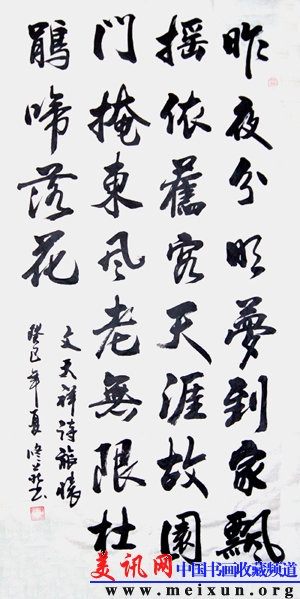 昨夜分明夢到家飄
摇依舊客天涯故園
门掩東风老無限杜
鵑啼落花
文天祥诗旅懷
癸巳年夏
美讯网 中国书画收藏频道
www.meixun.org